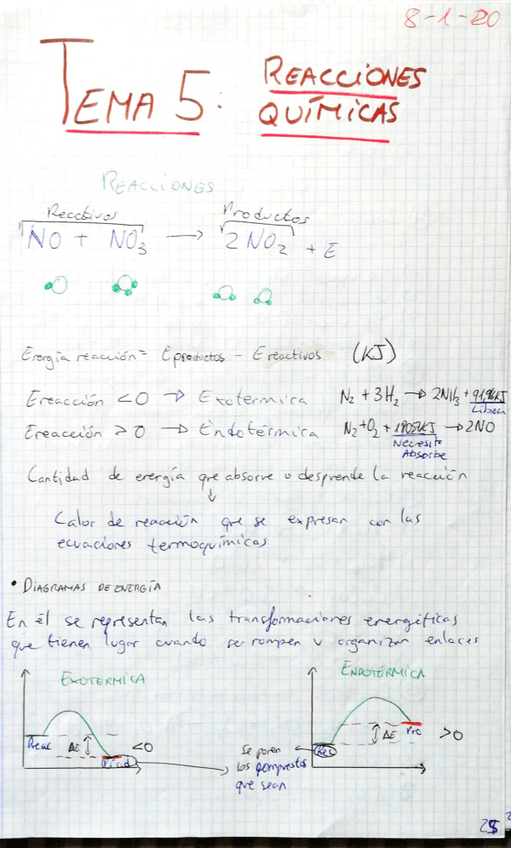 8-1-20
TEMA 5: REACCIONES QUÍMICAS
REACCIONES
Reactivos Productos
NO + NO₃ → 2NO₂ + E
Energía reacción = Eproductos - Ereactivos (KJ)
Ereacción <0 → Exotermica N₂ + 3H₂ → 2NH₃ + 91,96KJ
Libera
Ereacción >0 → Endotérmica N₂+O₂ + KJ → 2NO
Necesita
Absorbe
Cantidad de energía que absorve o desprende la reacción
↓
Calor de reacción que se expresan con las
ecuaciones termoquímicas
• DIAGRAMAS DE ENERGÍA
En él se representan las transformaciones energéticas
que tienen lugar cuando se rompen u organizan enlaces
EXOTERMICA ENDOTÉRMICA
Reac ΔE <0 Prod
Rec ΔE Pro >0
Se ponen
los compuestos
que sean
25